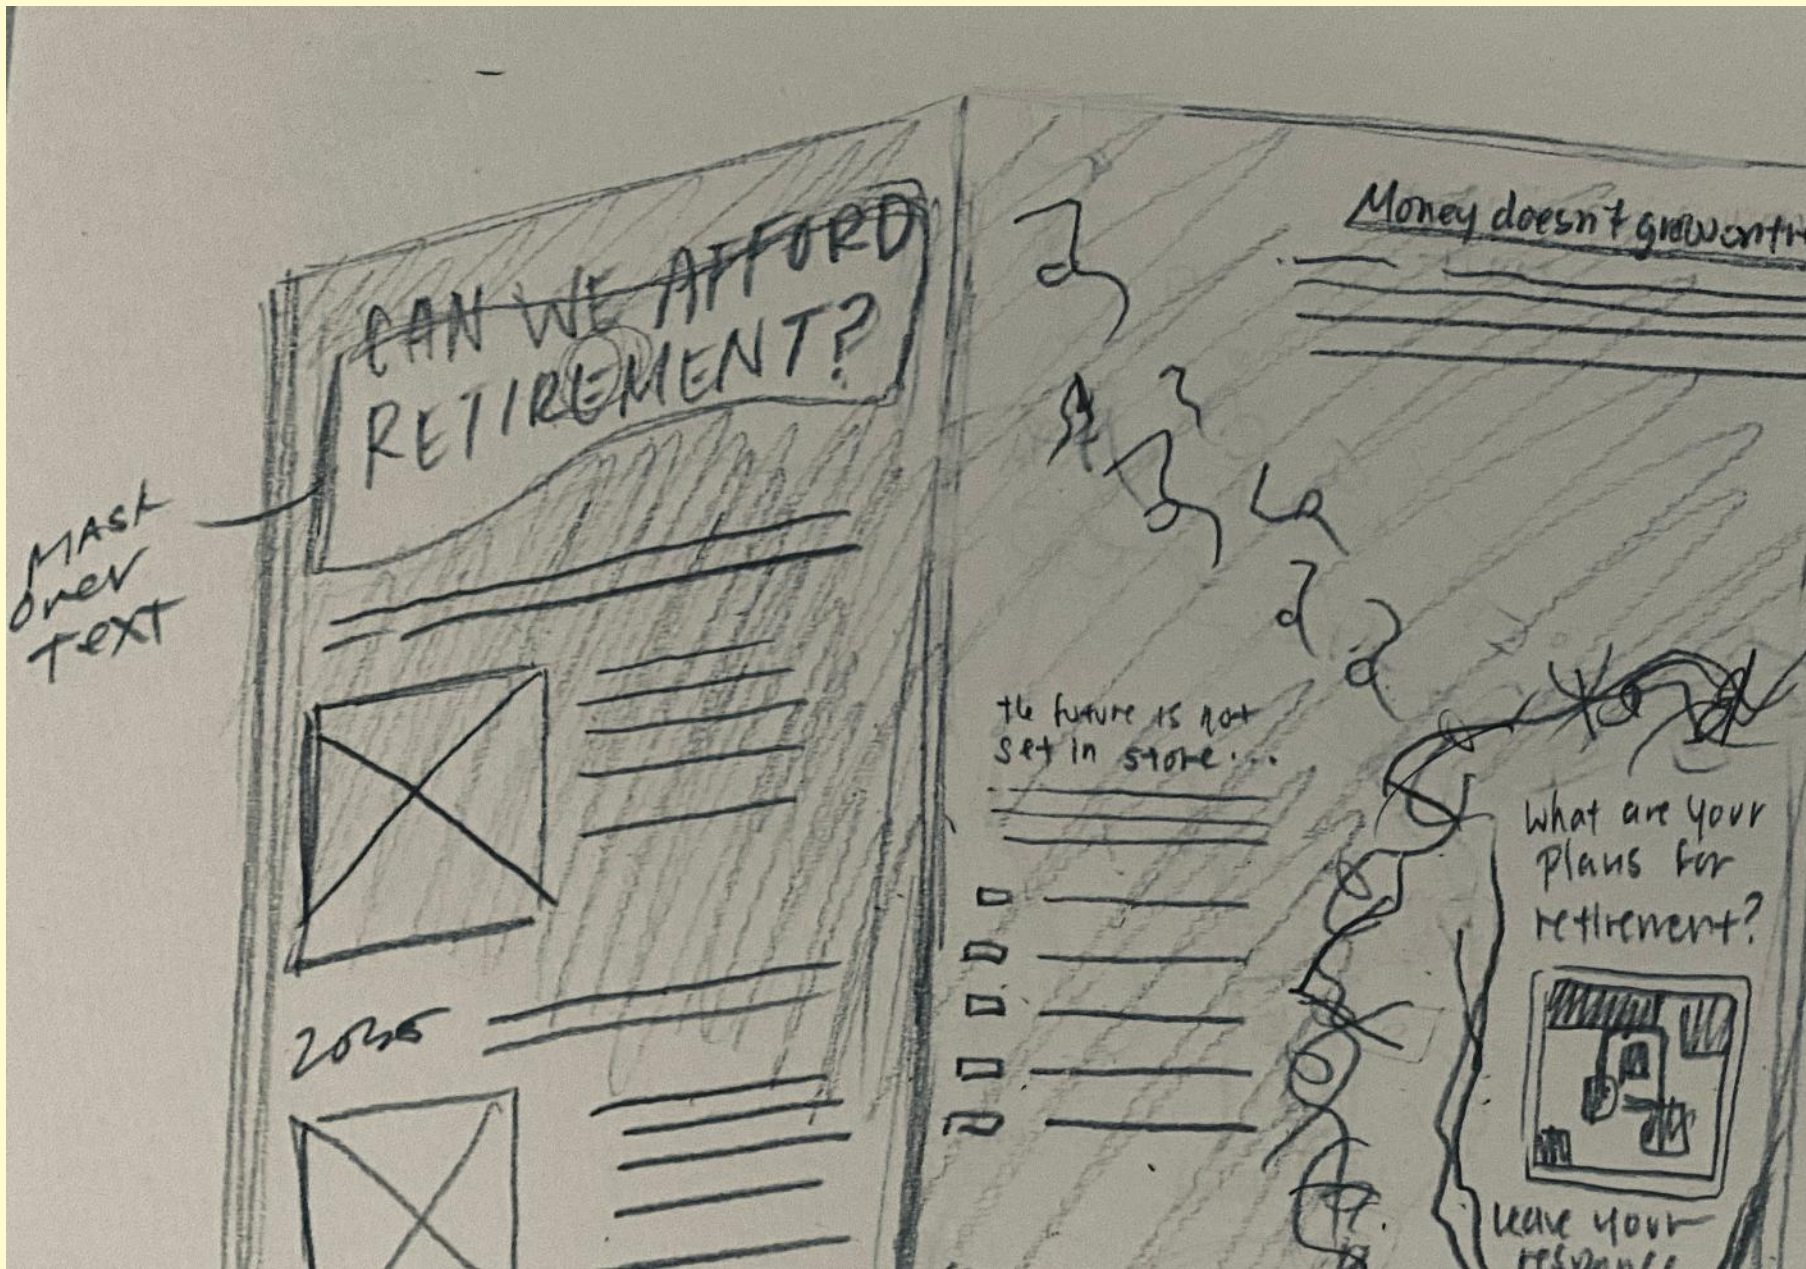 CAN WE AFFORD
RETIREMENT?
MASK
over
TEXT
Money doesn't grow on tr
the future is not
set in stone...
What are your
plans for
retirement?
leave your
response